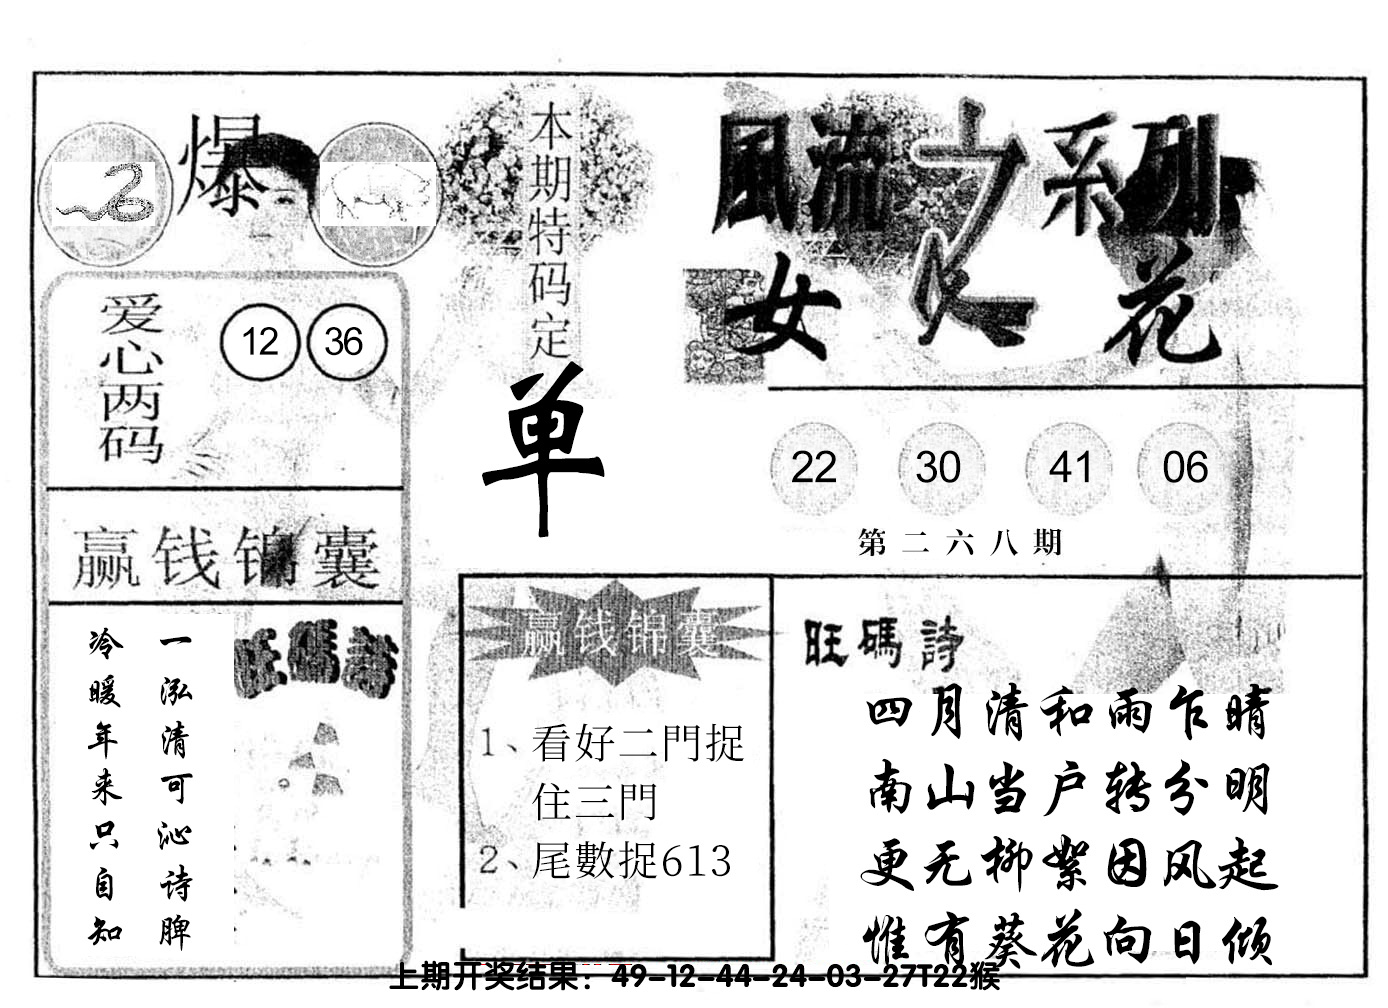 爆
本期特码定
单
風流之系列
女人花
爱心两码
12 36
22 30 41 06
第二六八期
赢钱锦囊
旺碼詩
一泓清可沁诗脾
冷暖年来只自知
赢钱锦囊
1、看好二門捉
住三門
2、尾數捉613
旺碼詩
四月清和雨乍晴
南山当户转分明
更无柳絮因风起
惟有葵花向日倾
上期开奖结果：49-12-44-24-03-27T22猴